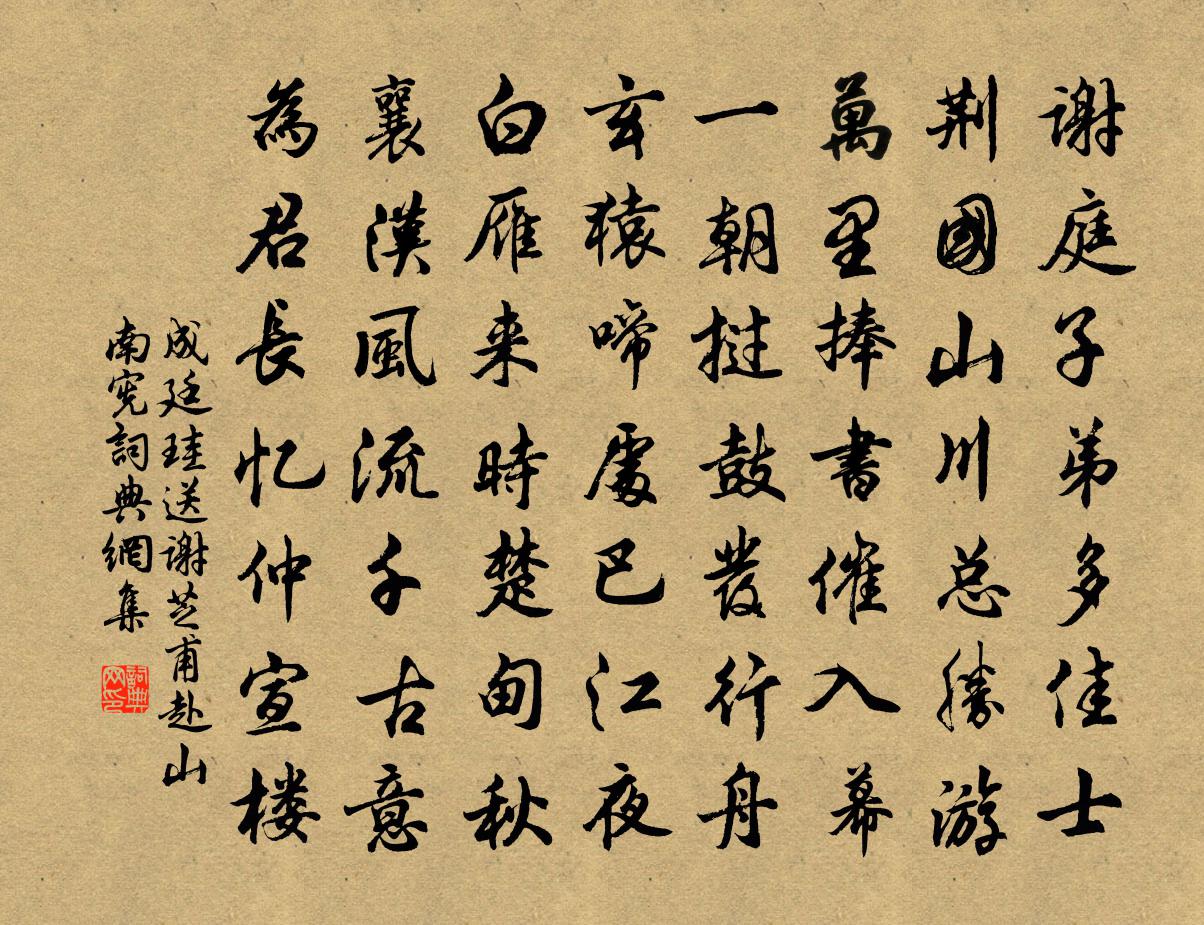 谢庭子弟多佳士
荆國山川总勝游
萬里捧書催入幕
一朝挝鼓發行舟
玄猿啼處巴江夜
白雁来時楚甸秋
襄漢風流千古意
為君長忆仲宣楼
成廷珪送谢芝甫赴山
南宪詞典網集
詞典
网印